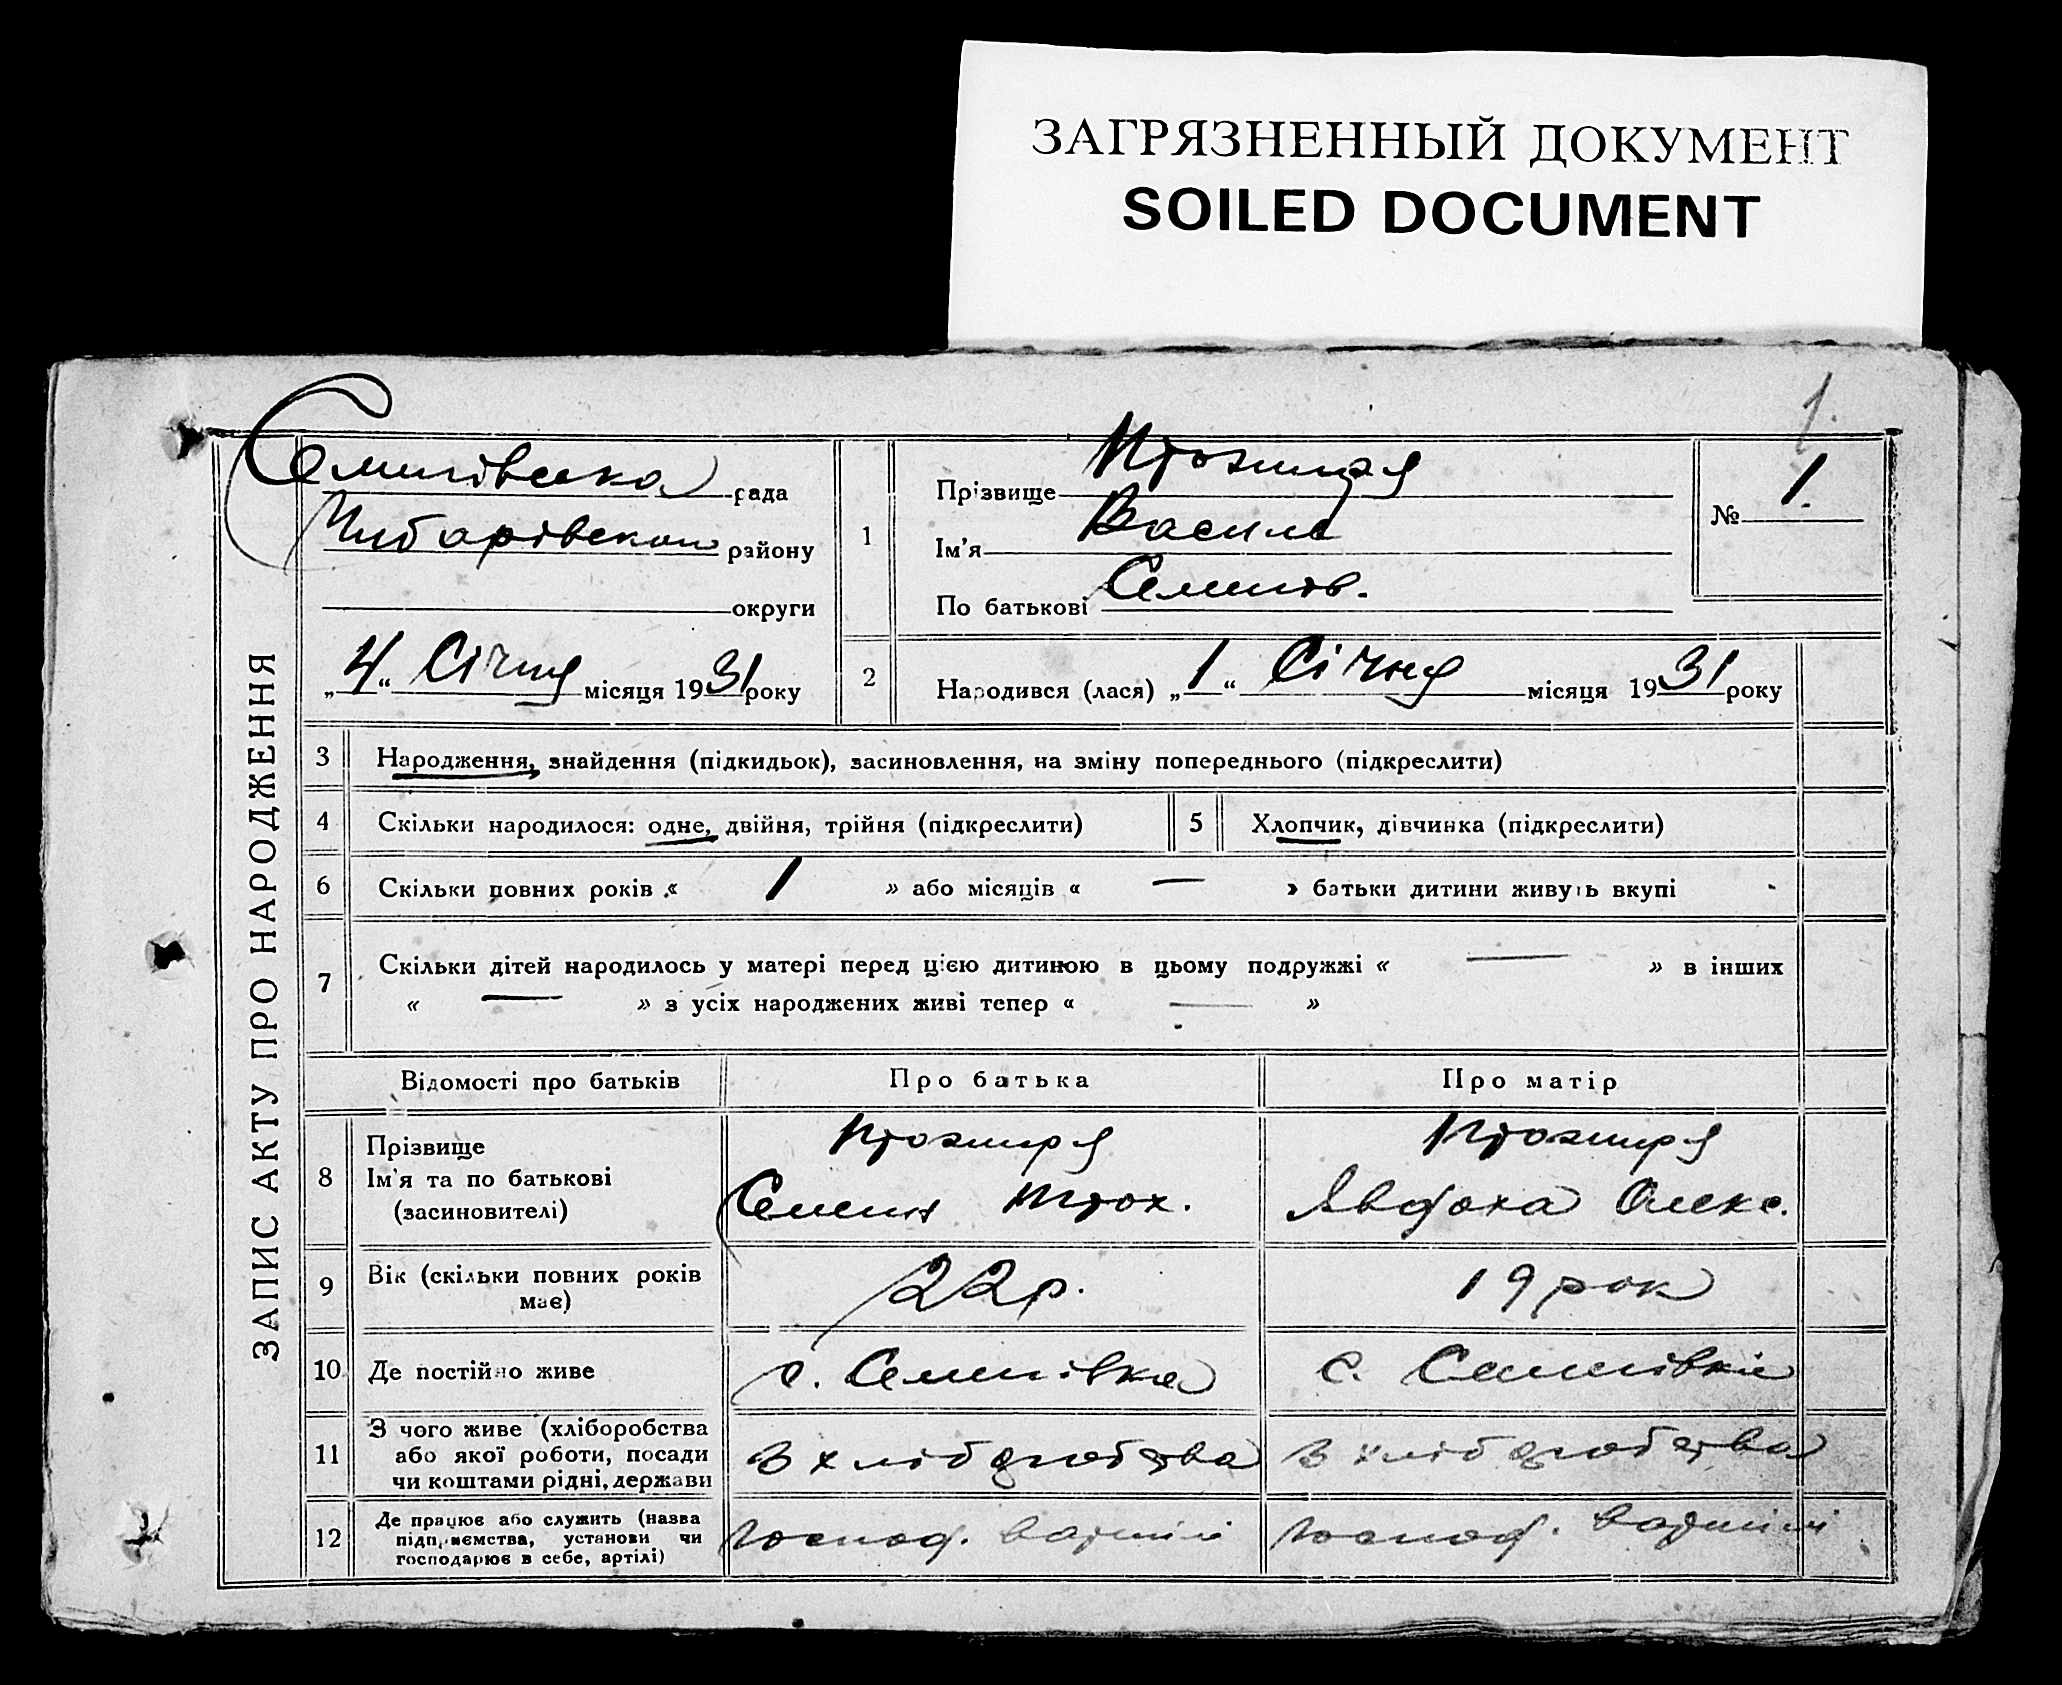 ЗАГРЯЗНЕННЫЙ ДОКУМЕНТ
SOILED DOCUMENT
1.
ЗАПИС АКТУ ПРО НАРОДЖЕННЯ
рада
району
округи
„4“ Січня місяця 1931 року
1
Прізвище
Ім'я Василь
По батькові Семенів.
№ 1.
2
Народився (лася) „1“ Січня місяця 1931 року
3 Народження, знайдення (підкидьок), засиновлення, на зміну попереднього (підкреслити)
4 Скільки народилося: одне, двійня, трійня (підкреслити)
5 Хлопчик, дівчинка (підкреслити)
6 Скільки повних років « 1 » або місяців « — » батьки дитини живуть вкупі
7 Скільки дітей народилось у матері перед цією дитиною в цьому подружжі « — » в інших
« — » з усіх народжених живі тепер « — »
Відомості про батьків
Про батька
Про матір
8 Прізвище
Ім'я та по батькові
(засиновителі)
Семен Трох.
Явдоха Олекс.
9 Вік (скільки повних років
має)
22 р.
19 рок
10 Де постійно живе
с. Семенівка
с. Семенівка
11 З чого живе (хліборобства
або якої роботи, посади
чи коштами рідні, держави
з хліборобства
з хліборобства
12 Де працює або служить (назва
підприємства, установи чи
господарює в себе, артілі)
господ.
господ.